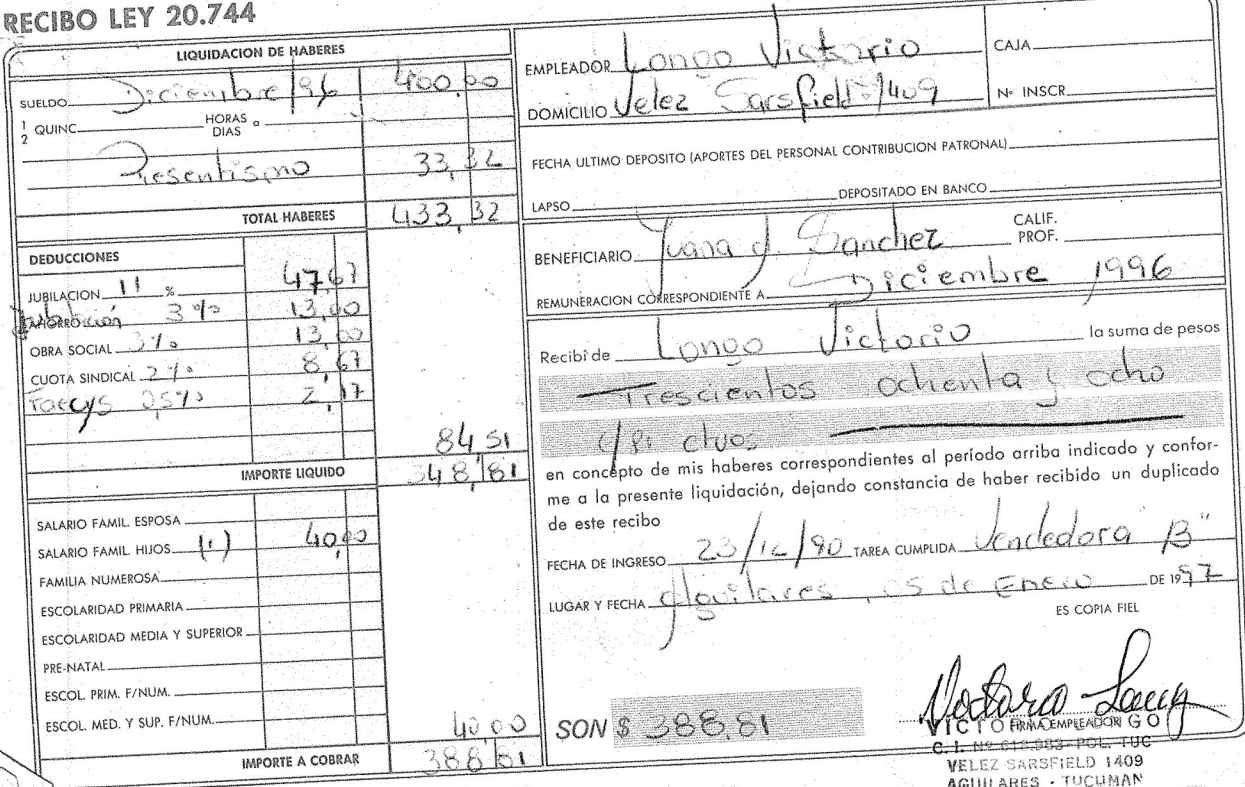 RECIBO LEY 20.744
LIQUIDACION DE HABERES
SUELDO Diciembre/96 400,00
1/2 QUINC. HORAS o DIAS
Presentismo 33,32
TOTAL HABERES 433,32
DEDUCCIONES
JUBILACION 11 % 47,67
AHORRO 3% 13,00
OBRA SOCIAL 3% 13,00
CUOTA SINDICAL 2% 8,67
Faecys 0,5% 2,17
84,51
IMPORTE LIQUIDO 348,81
SALARIO FAMIL. ESPOSA
SALARIO FAMIL. HIJOS (1) 40,00
FAMILIA NUMEROSA
ESCOLARIDAD PRIMARIA
ESCOLARIDAD MEDIA Y SUPERIOR
PRE-NATAL
ESCOL. PRIM. F/NUM.
ESCOL. MED. Y SUP. F/NUM. 40,00
IMPORTE A COBRAR 388,81
EMPLEADOR Longo Victorio
DOMICILIO Velez Sarsfield 1409
CAJA
Nº INSCR.
FECHA ULTIMO DEPOSITO (APORTES DEL PERSONAL CONTRIBUCION PATRONAL)
LAPSO DEPOSITADO EN BANCO
BENEFICIARIO Juana J. Sanchez CALIF. PROF.
REMUNERACION CORRESPONDIENTE A Diciembre 1996
Recibí de Longo Victorio la suma de pesos
Trescientos ochenta y ocho
c/81 ctvos
en concepto de mis haberes correspondientes al período arriba indicado y confor-
me a la presente liquidación, dejando constancia de haber recibido un duplicado
de este recibo
FECHA DE INGRESO 23/12/90 TAREA CUMPLIDA Vendedora "B"
LUGAR Y FECHA Aguilares, 05 de Enero DE 1997
ES COPIA FIEL
SON $ 388,81
FIRMA EMPLEADOR
VELEZ SARSFIELD 1409
AGUILARES - TUCUMAN